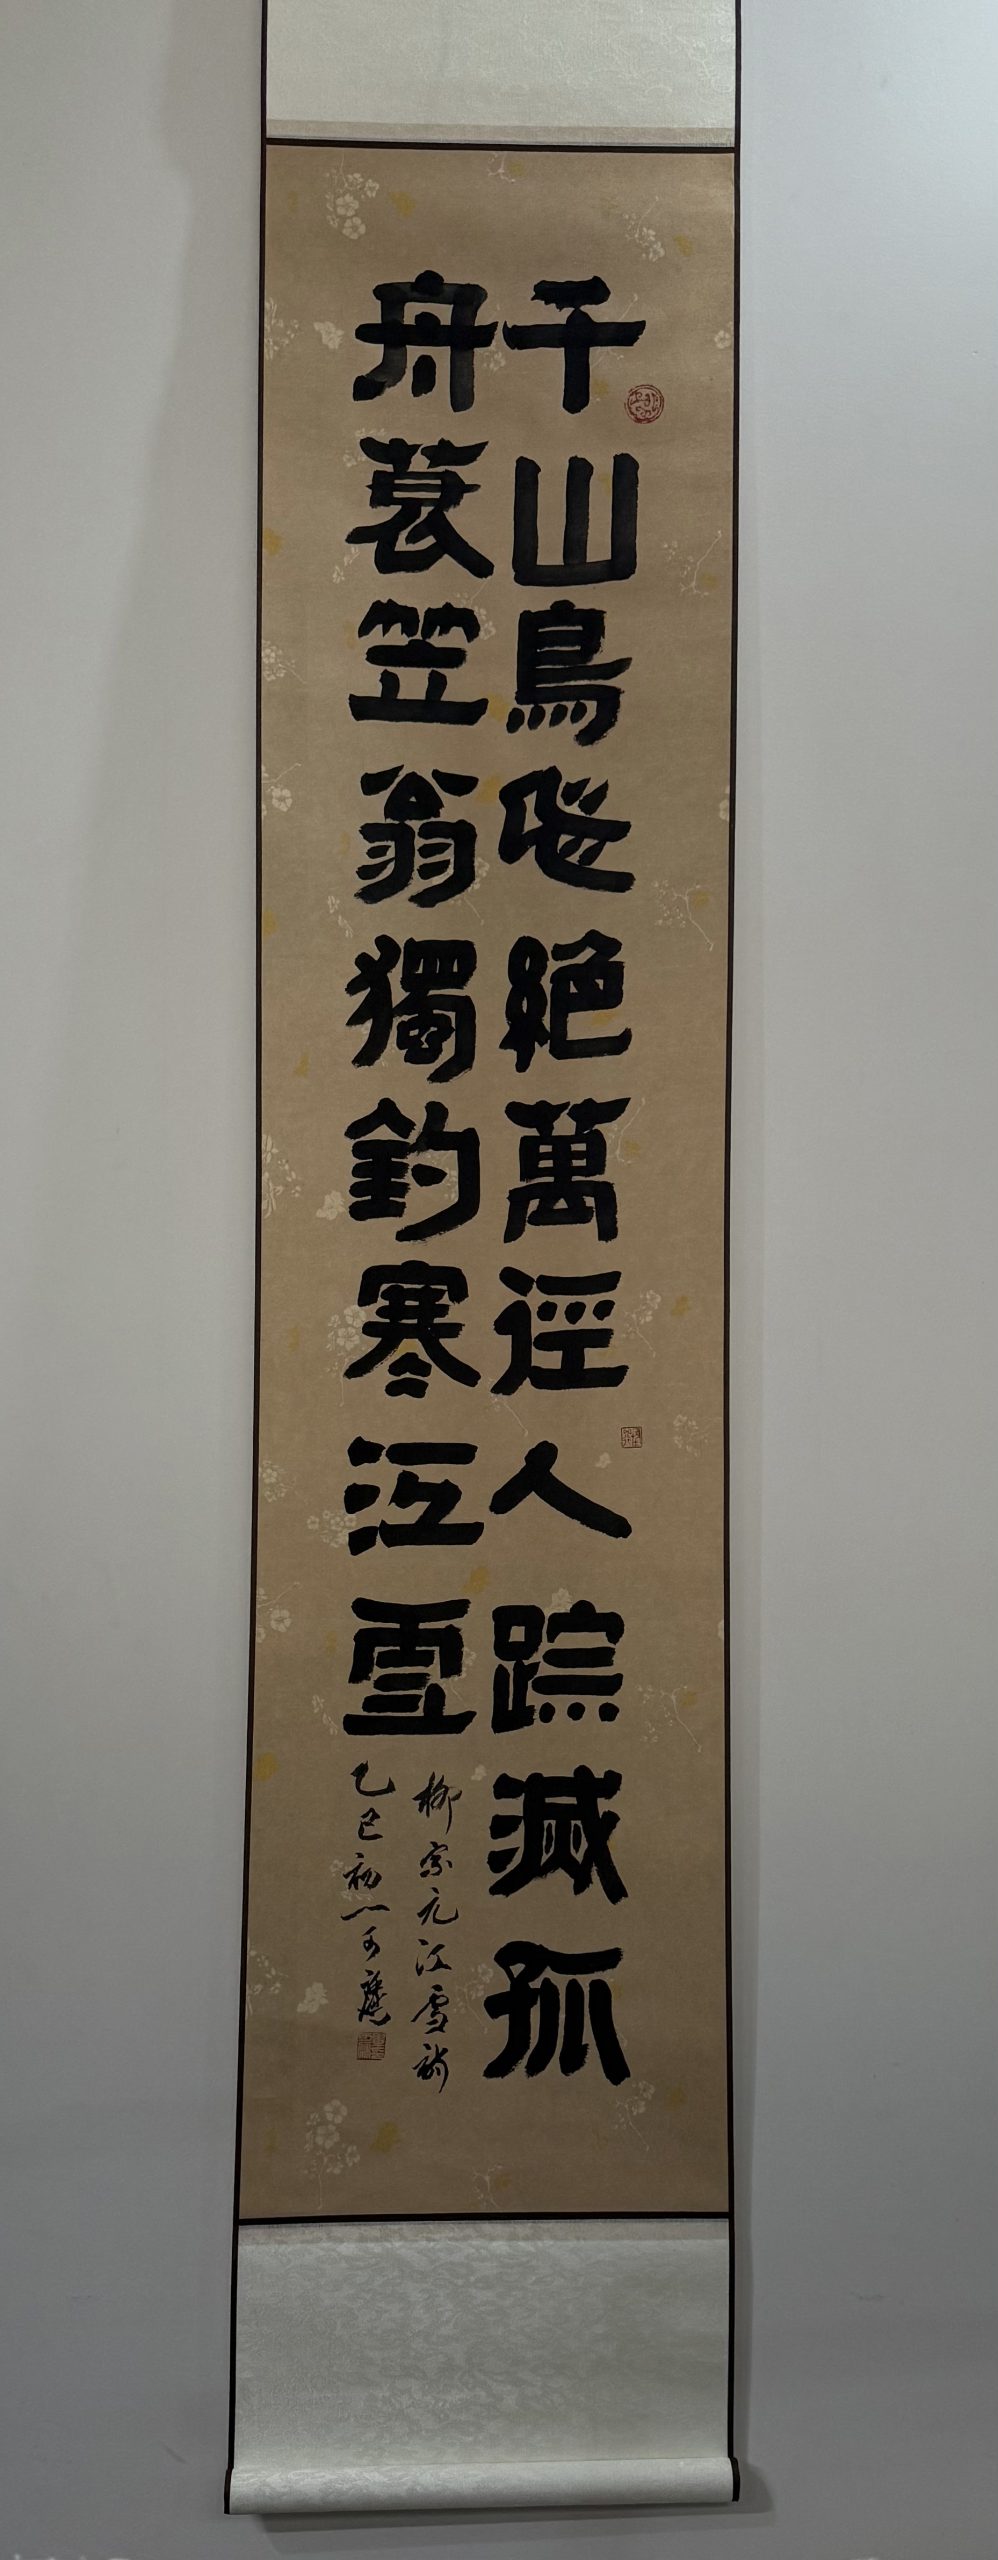 千山鳥飛絕萬徑人踪滅孤
舟蓑笠翁獨釣寒江雪
柳宗元江雪詩
乙巳初